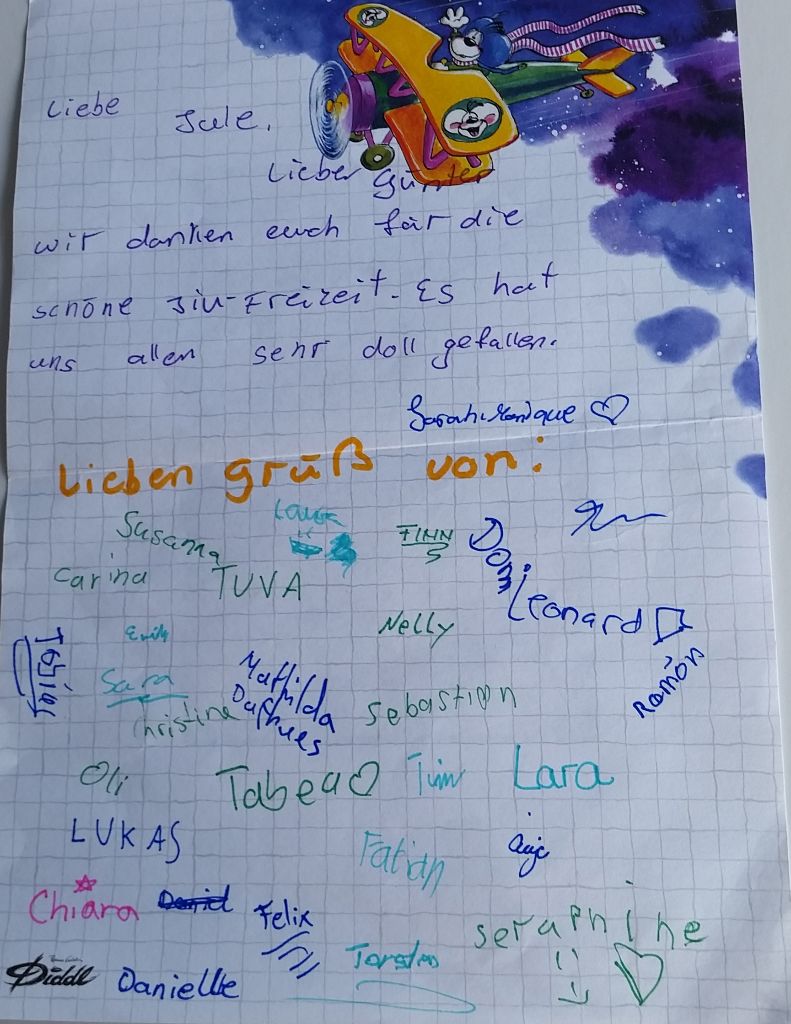 Liebe Jule,
Lieber Günter
wir danken euch für die
schöne Jiu-Freizeit. Es hat
uns allen sehr doll gefallen.
Sarah-Monique
Lieben grüß von:
Susanna
Laura
FINN
S
Domi
Carina
TUVA
Leonard
Emily
Nelly
Tobias
Sara
Mathilda
Christine
Sebastian
Ramón
Oli
Tabea
Tim
Lara
LUKAS
Fabian
Chiara
Daniel
Felix
seraphine
Torsten
Diddl
Danielle